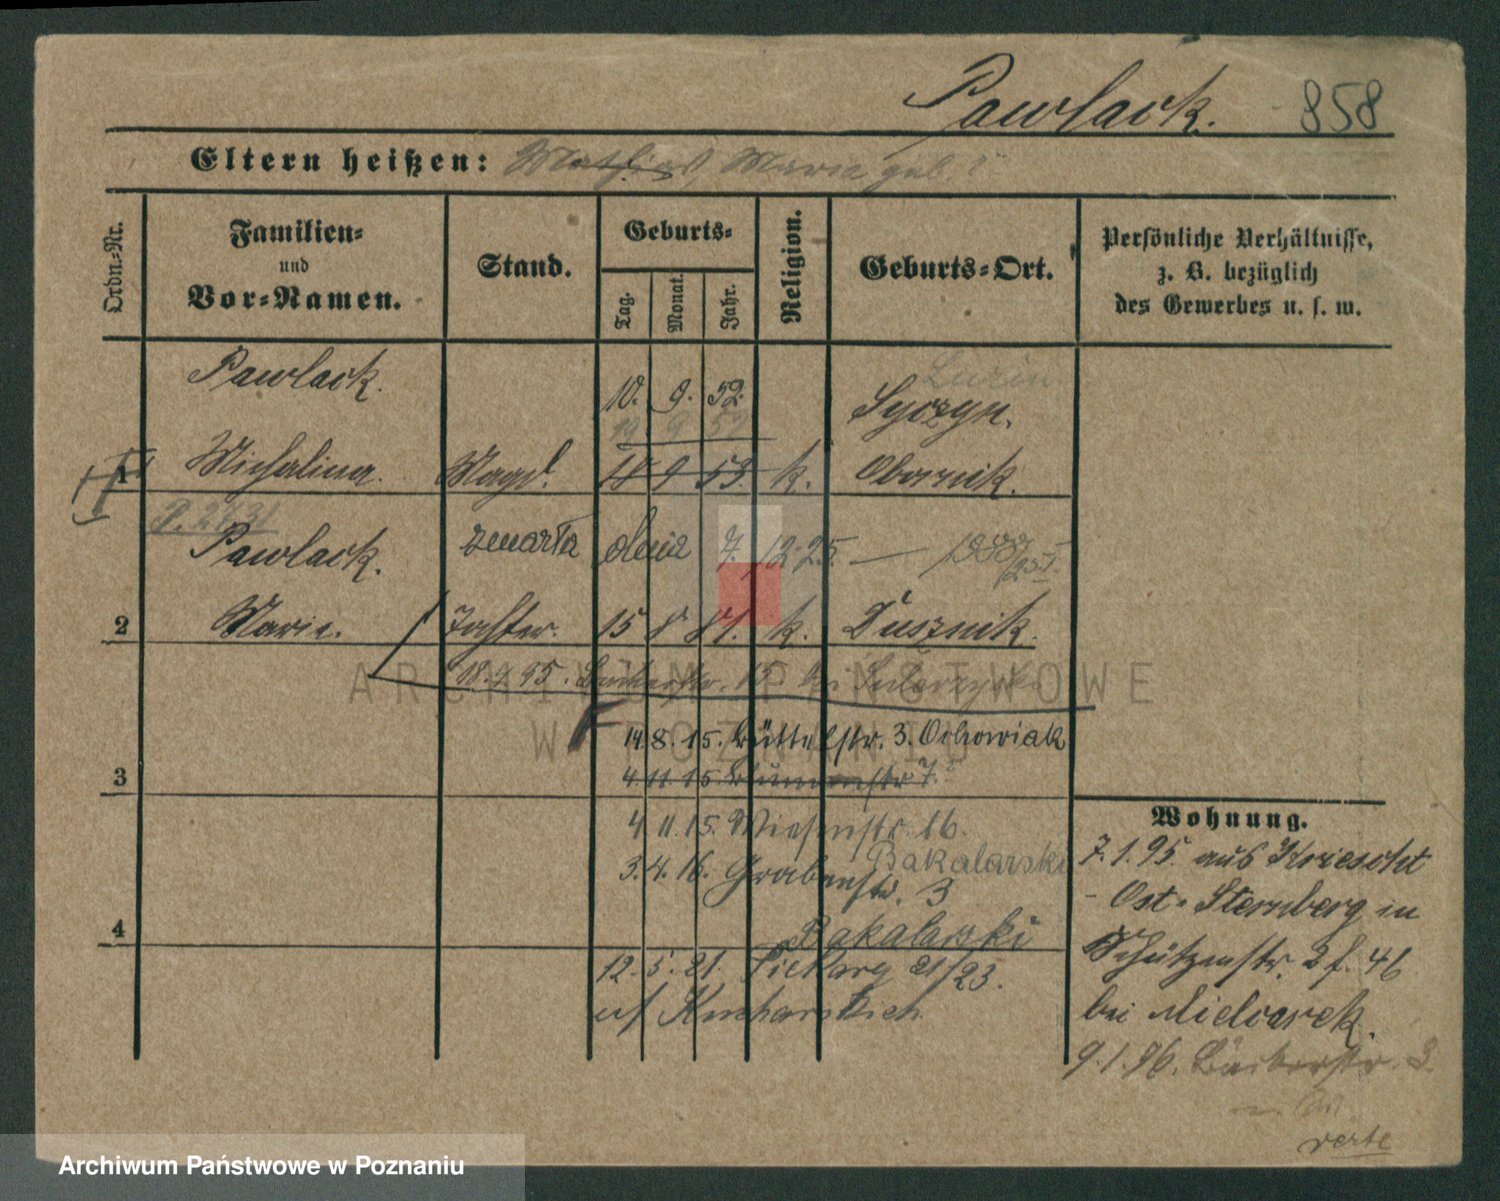 Pawlack. 858
Eltern heißen: Mathias, Maria geb. ?
Ordn.-Nr.
Familien-
und
Vor-Namen.
Stand.
Geburts-
Tag.
Monat.
Jahr.
Religion.
Geburts-Ort.
Persönliche Verhältnisse,
z. B. bezüglich
des Gewerbes u. s. w.
Pawlack. 10. 9. 52.
19 9 52
1 Michalina. Magd. 18 9 53 k. Obornik.
Pawlack. zmarła dnia 7. 12. 25. —
2 Marie. Tochter. 15 8 81. k. Dusznik.
18. 7. 95.
14. 8. 15. Büttelstr. 3. Ochowiak
3 4. 11. 15. Blumenstr 7.
4. 11. 15. Wiesenstr. 16.
Bakalarski
3. 4. 16. Grabenstr. 3
4 Bakalarski
12. 5. 21. Piekary 21/23.
u/ Kucharskich
Wohnung.
7. 1. 95. aus Kriescht
- Ost-Sternberg in
Schützenstr. 2 f. 46
bei Mielcarek.
9. 1. 96. Bäckerstr.
verte
ARCHIWUM PAŃSTWOWE
W POZNANIU
Archiwum Państwowe w Poznaniu